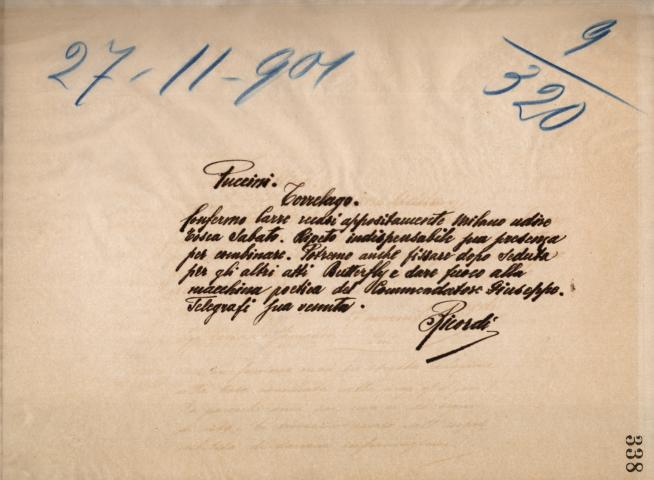 27-11-901
9
320
Puccini.
Torrelago.
Confermo Carrè recasi appositamente Milano udire
Tosca Sabato. Ripeto indispensabile sua presenza
per combinare. Potremo anche fissare dopo seduta
per gli altri atti Butterfly e dare fuoco alla
macchina poetica del Commendatore Giuseppe.
Telegrafi sua venuta.
Ricordi
338